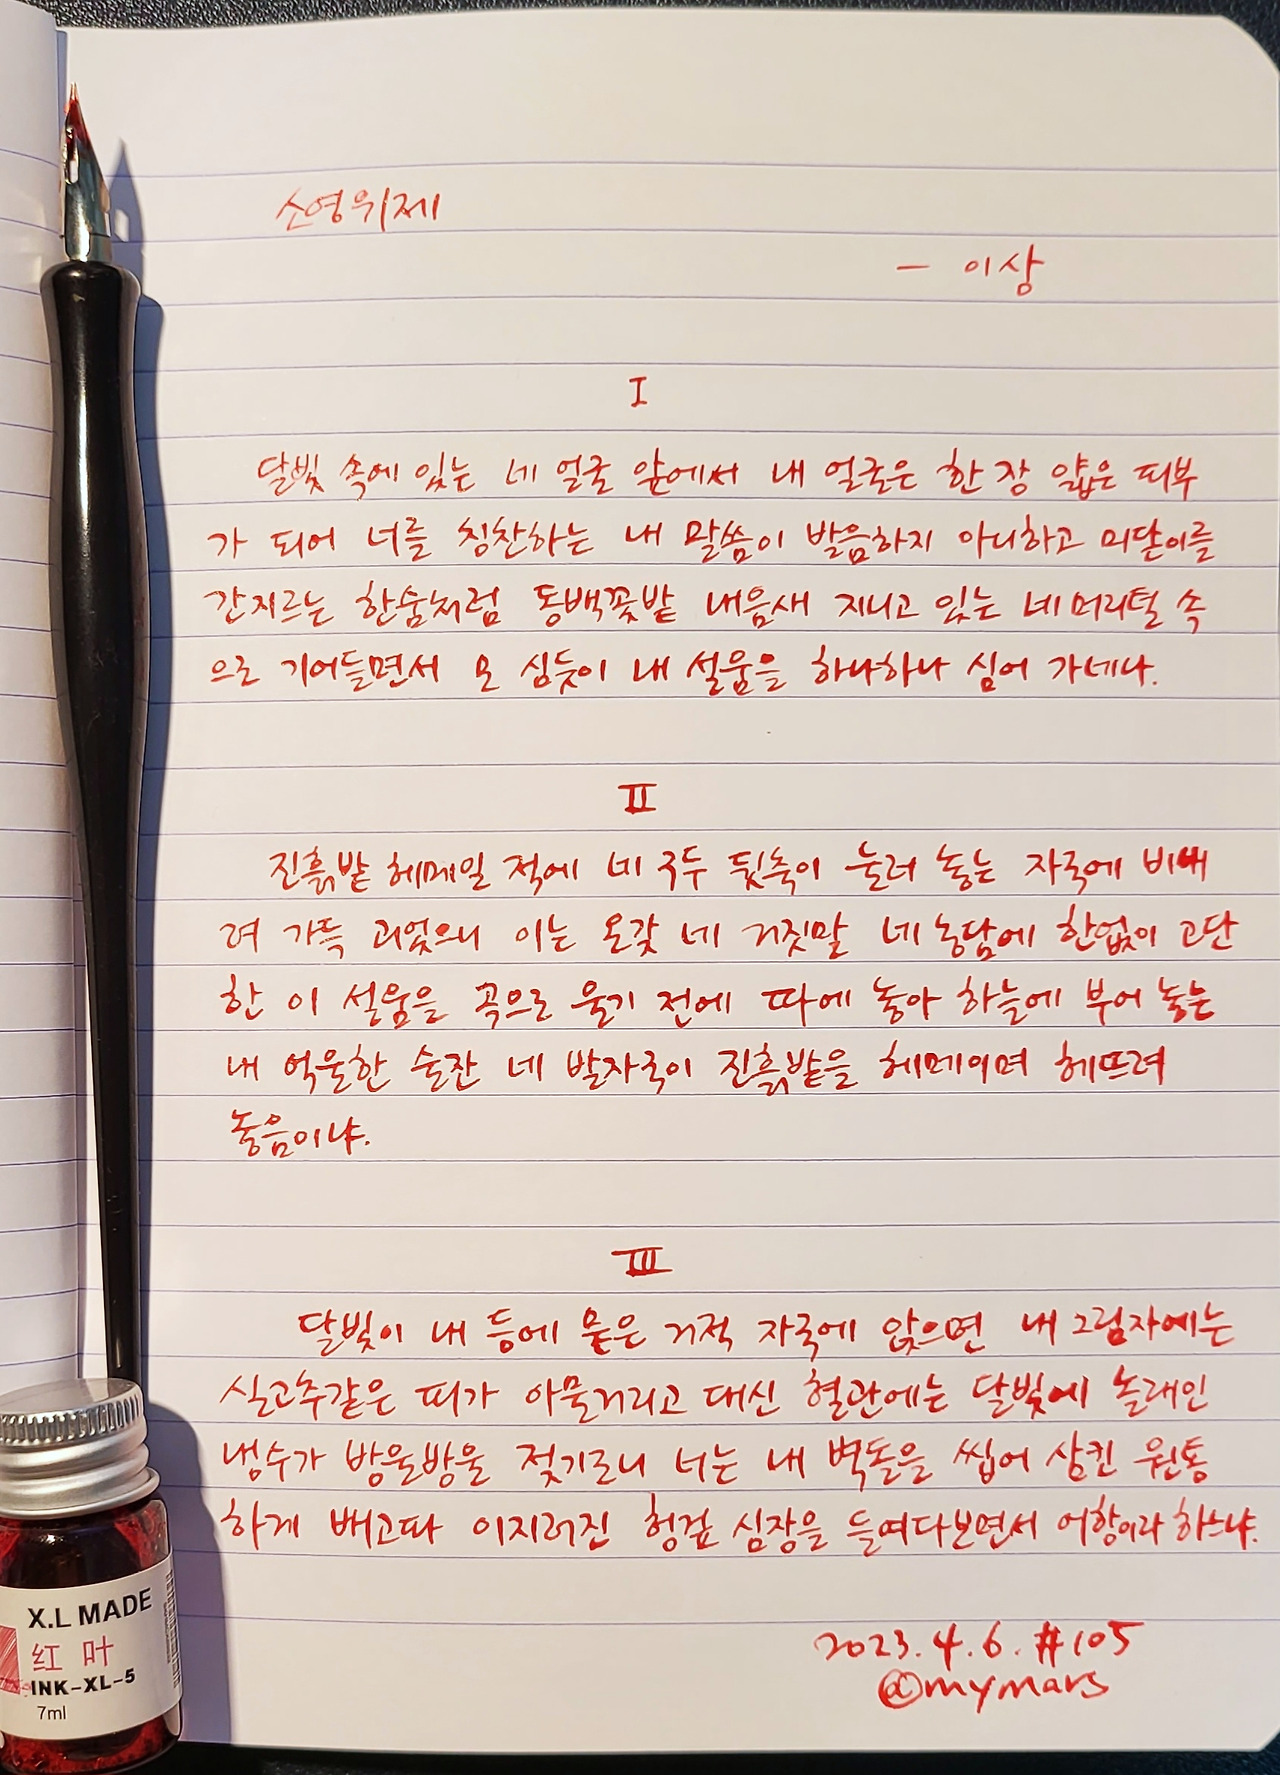 소영위제
- 이상
I
달빛 속에 있는 네 얼굴 앞에서 내 얼굴은 한 장 얇은 피부
가 되어 너를 칭찬하는 내 말씀이 발음하지 아니하고 미닫이를
간지르는 한숨처럼 동백꽃밭 내음새 지니고 있는 네 머리털 속
으로 기어들면서 모 심듯이 내 설움을 하나하나 심어 가네나.
II
진흙밭 헤메일 적에 네 구두 뒷축이 눌러 놓는 자국에 비내
려 가득 괴었으니 이는 온갖 네 거짓말 네 농담에 한없이 고단
한 이 설움을 곡으로 울기 전에 따에 놓아 하늘에 부어 놓는
내 억울한 술잔 네 발자국이 진흙밭을 헤메이며 헤뜨려
놓음이냐.
III
달빛이 내 등에 묻은 거적 자국에 앉으면 내 그림자에는
실고추같은 피가 아물거리고 대신 혈관에는 달빛에 놀래인
냉수가 방울방울 젖기로니 너는 내 벽돌을 씹어 삼킨 원통
하게 배고파 이지러진 헝겊 심장을 들여다보면서 어항이라 하느냐.
2023.4.6. #105
@mymars
X.L MADE
红叶
INK-XL-5
7ml